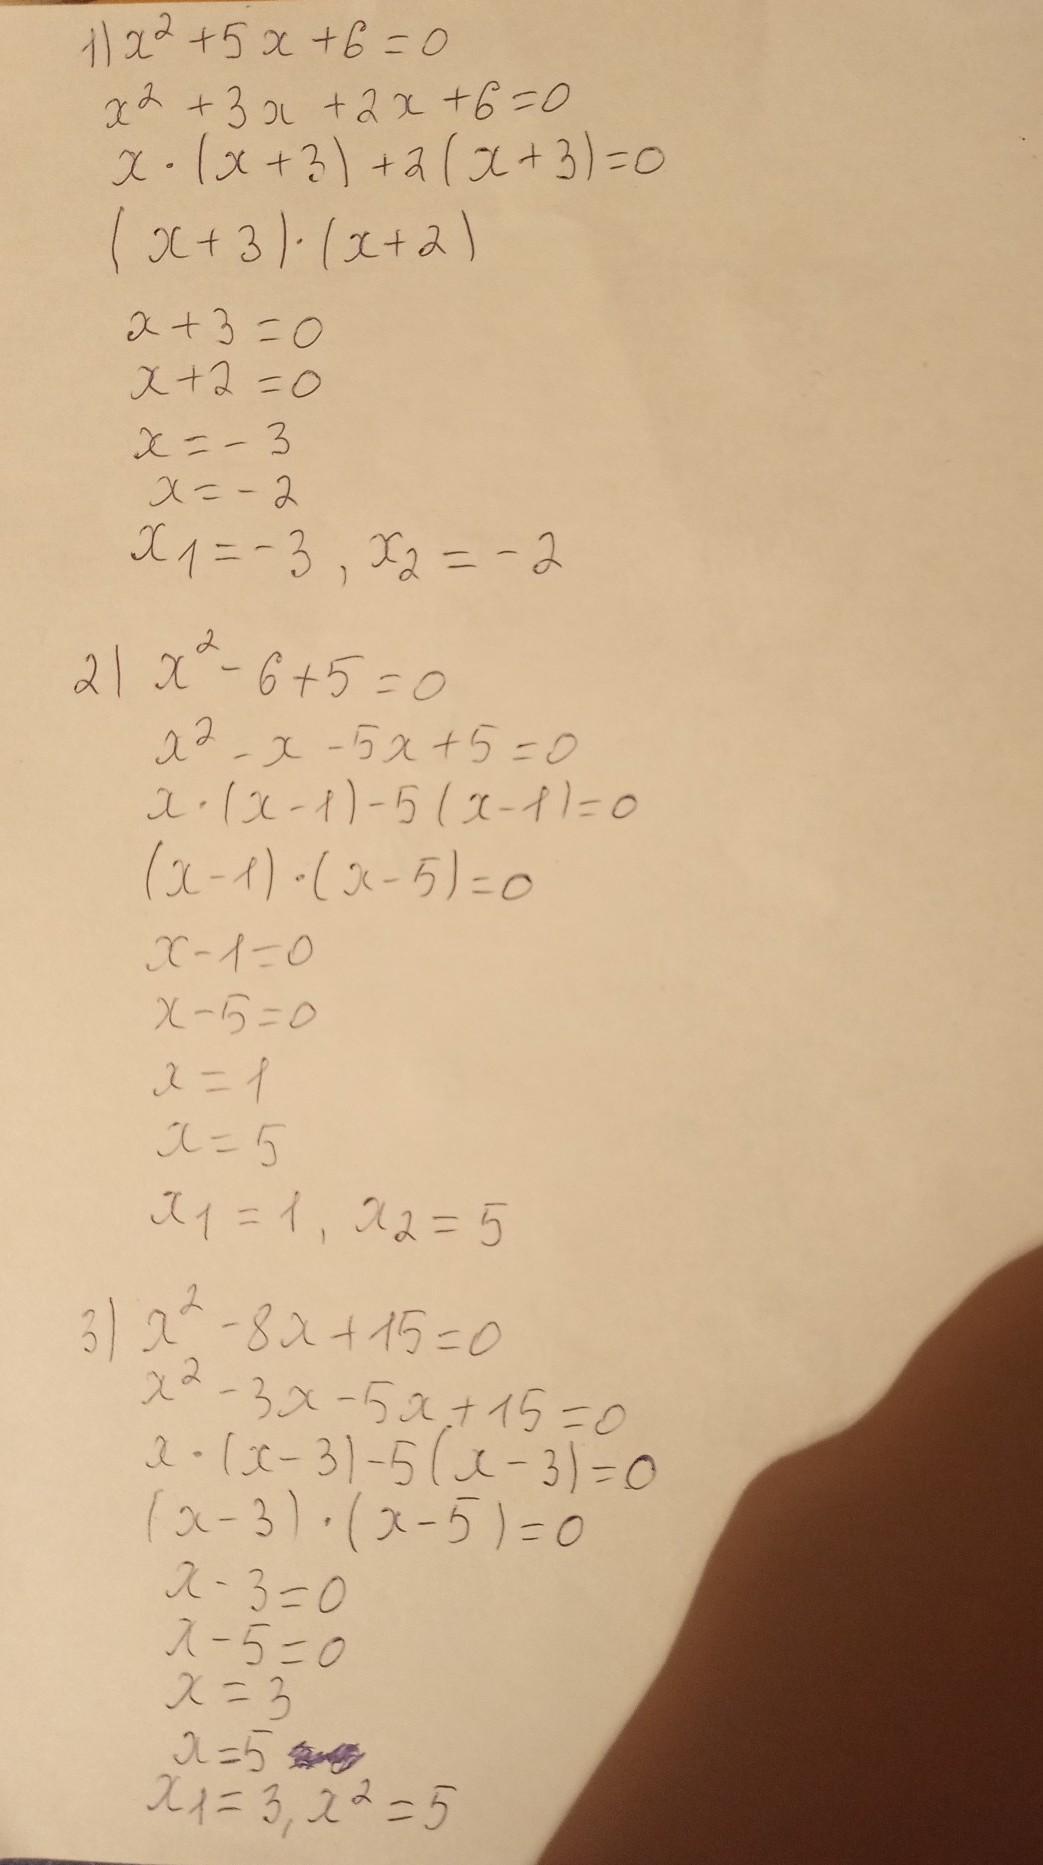 1) x² + 5x + 6 = 0
x² + 3x + 2x + 6 = 0
x · (x + 3) + 2(x + 3) = 0
(x + 3) · (x + 2)
x + 3 = 0
x + 2 = 0
x = - 3
x = - 2
x₁ = - 3, x₂ = - 2
2) x² - 6 + 5 = 0
x² - x - 5x + 5 = 0
x · (x - 1) - 5(x - 1) = 0
(x - 1) · (x - 5) = 0
x - 1 = 0
x - 5 = 0
x = 1
x = 5
x₁ = 1, x₂ = 5
3) x² - 8x + 15 = 0
x² - 3x - 5x + 15 = 0
x · (x - 3) - 5(x - 3) = 0
(x - 3) · (x - 5) = 0
x - 3 = 0
x - 5 = 0
x = 3
x = 5
x₁ = 3, x² = 5